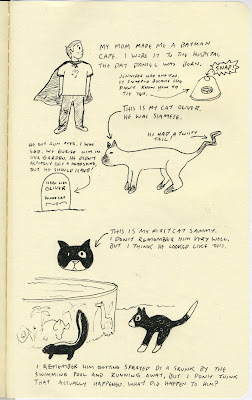 MY MOM MADE ME A BATMAN
CAPE. I WORE IT TO THE HOSPITAL
THE DAY DANIEL WAS BORN.
JENNIFER HAD ONE TOO,
IT SNAPPED BECAUSE SHE
DIDN'T KNOW HOW TO
TIE YET.
SNAP!
THIS IS MY CAT OLIVER.
HE WAS SIAMESE.
HE HAD A TWISTY
TAIL!
HE GOT RUN OVER. I WAS
SAD. WE BURIED HIM IN
OUR GARDEN. HE DIDN'T
ACTUALLY GET A HEADSTONE,
BUT HE SHOULD HAVE!
HERE LIES
OLIVER
THIS IS MY FIRST CAT SAMMY.
I DON'T REMEMBER HIM VERY WELL,
BUT I THINK HE LOOKED LIKE THIS.
I REMEMBER HIM GETTING SPRAYED BY A SKUNK BY THE
SWIMMING POOL AND RUNNING AWAY, BUT I DON'T THINK
THAT ACTUALLY HAPPENED. WHAT DID HAPPEN TO HIM?